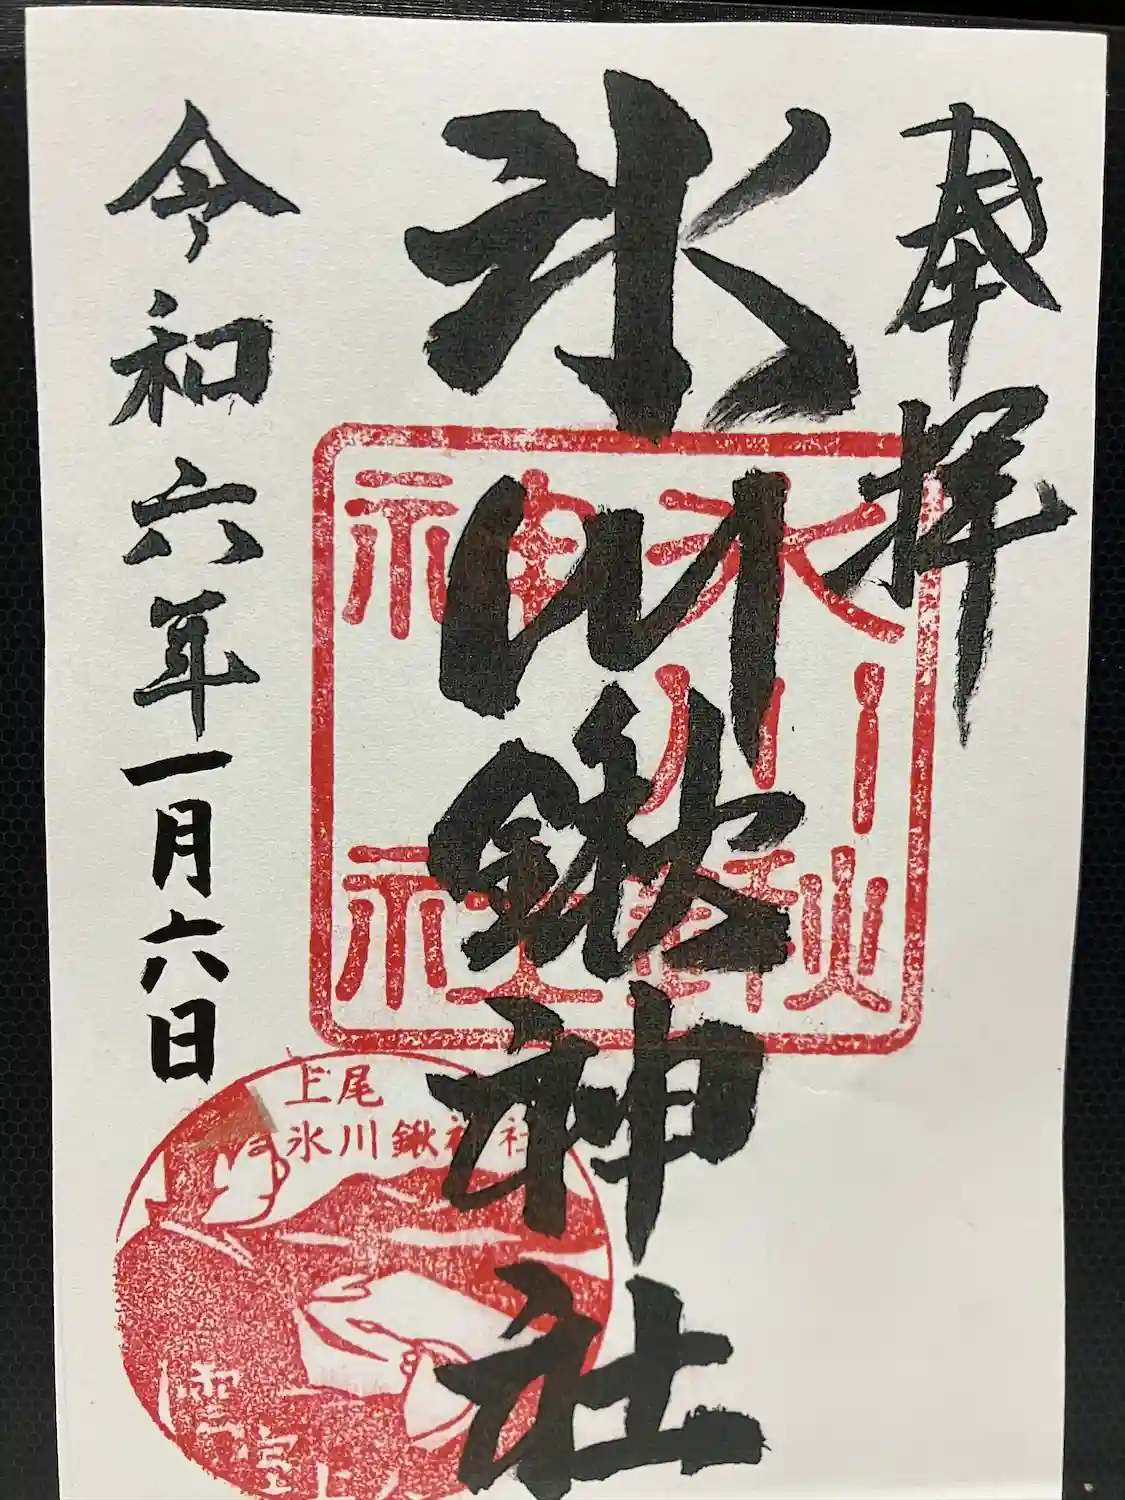 奉拝
氷川鍬神社
令和六年一月六日
氷川鍬
神社
上尾
氷川鍬神社